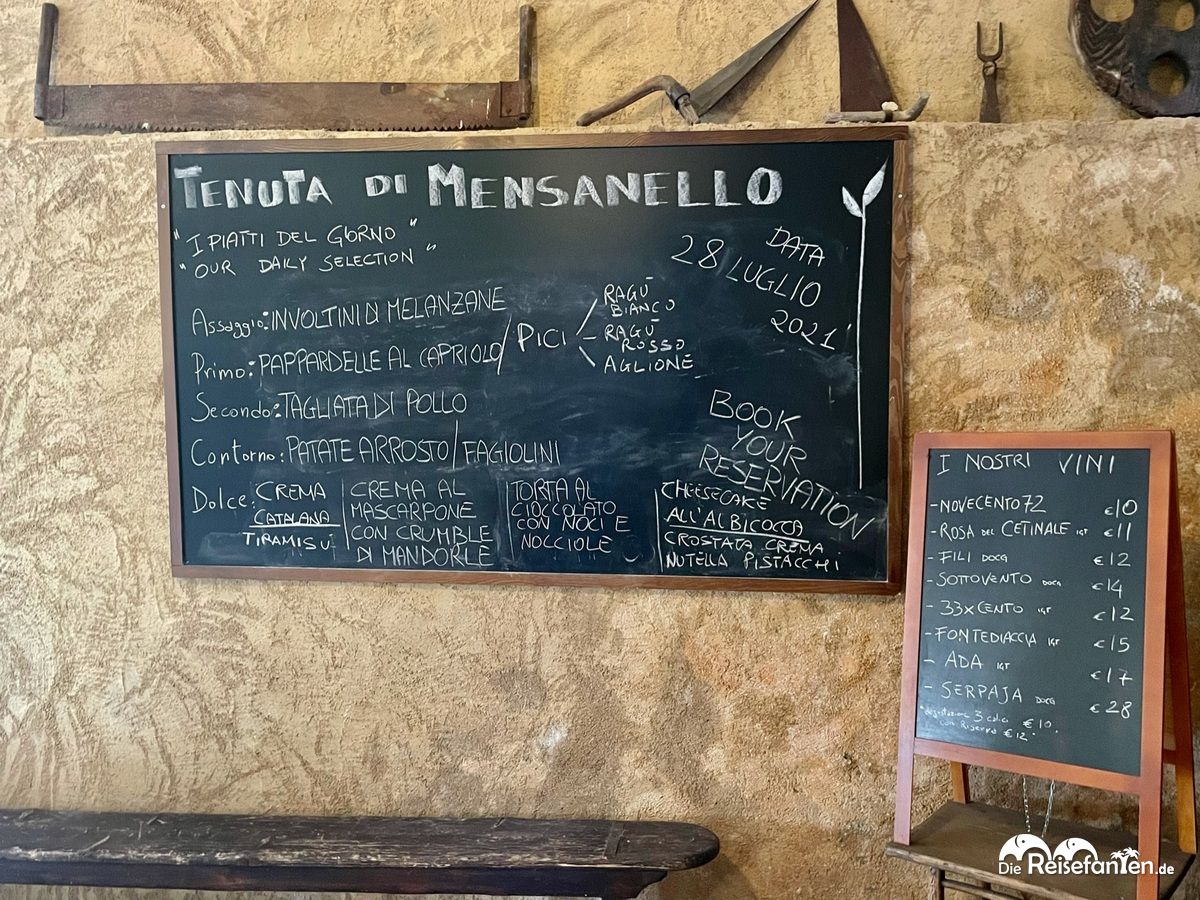 TENUTA DI MENSANELLO
"I PIATTI DEL GIORNO"
"OUR DAILY SELECTION"
DATA
28 LUGLIO
2021
Assaggio: INVOLTINI DI MELANZANE
Primo: PAPPARDELLE AL CAPRIOLO / PICI
RAGÙ
BIANCO
RAGÙ
ROSSO
AGLIONE
Secondo: TAGLIATA DI POLLO
Contorno: PATATE ARROSTO / FAGIOLINI
BOOK
YOUR
RESERVATION
Dolce: CREMA
CATALANA
TIRAMISU'
CREMA AL
MASCARPONE
CON CRUMBLE
DI MANDORLE
TORTA AL
CIOCCOLATO
CON NOCI E
NOCCIOLE
CHEESECAKE
ALL'ALBICOCCA
CROSTATA CREMA
NUTELLA PISTACCHI
I NOSTRI VINI
- NOVECENTO72 €10
- ROSA DEL CETINALE IGT €11
- FILI DOCG €12
- SOTTOVENTO DOCG €14
- 33XCENTO IGT €12
- FONTEDIACCIA IGT €15
- ADA IGT €17
- SERPAJA DOCG €28
*degustazione 3 calici €10.
con Riserva €12.
Die Reisefanten.de